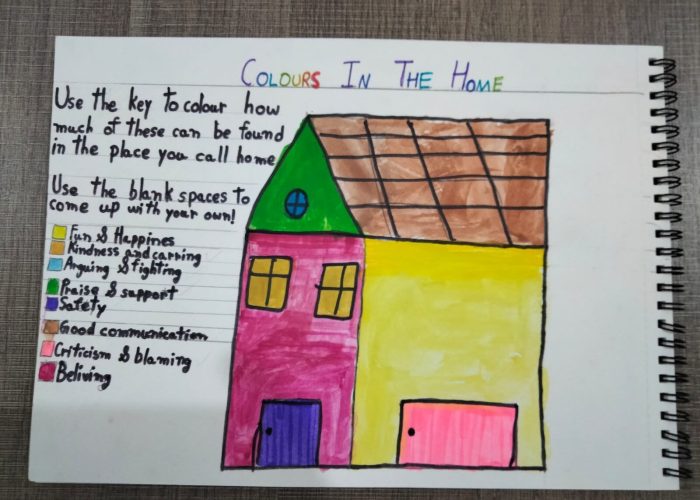 COLOURS IN THE HOME
Use the key to colour how
much of these can be found
in the place you call home
Use the blank spaces to
come up with your own!
Fun & Happines
Kindness and carring
Arguing & fighting
Praise & support
Safety
Good communication
Criticism & blaming
Beliving